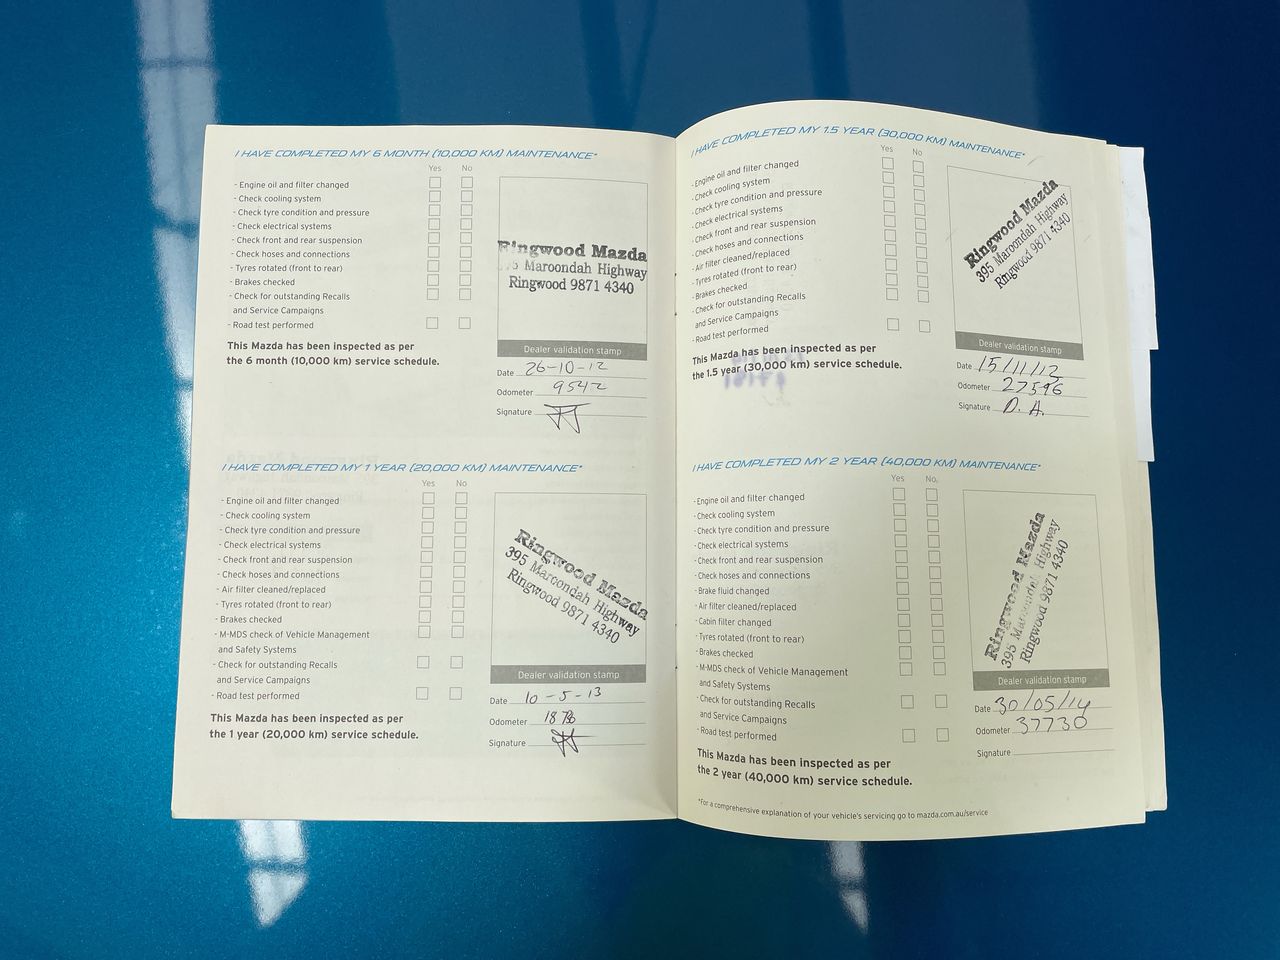 I HAVE COMPLETED MY 6 MONTH (10,000 KM) MAINTENANCE*
Yes No
- Engine oil and filter changed
- Check cooling system
- Check tyre condition and pressure
- Check electrical systems
- Check front and rear suspension
- Check hoses and connections
- Tyres rotated (front to rear)
- Brakes checked
- Check for outstanding Recalls
and Service Campaigns
- Road test performed
This Mazda has been inspected as per
the 6 month (10,000 km) service schedule.
Ringwood Mazda
395 Maroondah Highway
Ringwood 9871 4340
Dealer validation stamp
Date 26-10-12
Odometer 9542
Signature
I HAVE COMPLETED MY 1 YEAR (20,000 KM) MAINTENANCE*
Yes No
- Engine oil and filter changed
- Check cooling system
- Check tyre condition and pressure
- Check electrical systems
- Check front and rear suspension
- Check hoses and connections
- Air filter cleaned/replaced
- Tyres rotated (front to rear)
- Brakes checked
- M-MDS check of Vehicle Management
and Safety Systems
- Check for outstanding Recalls
and Service Campaigns
- Road test performed
This Mazda has been inspected as per
the 1 year (20,000 km) service schedule.
Ringwood Mazda
395 Maroondah Highway
Ringwood 9871 4340
Dealer validation stamp
Date 10-5-13
Odometer
Signature
I HAVE COMPLETED MY 1.5 YEAR (30,000 KM) MAINTENANCE*
Yes No
- Engine oil and filter changed
- Check cooling system
- Check tyre condition and pressure
- Check electrical systems
- Check front and rear suspension
- Check hoses and connections
- Air filter cleaned/replaced
- Tyres rotated (front to rear)
- Brakes checked
- Check for outstanding Recalls
and Service Campaigns
- Road test performed
This Mazda has been inspected as per
the 1.5 year (30,000 km) service schedule.
Ringwood Mazda
395 Maroondah Highway
Ringwood 9871 4340
Dealer validation stamp
Date 15/11/13
Odometer 27596
Signature D. A.
I HAVE COMPLETED MY 2 YEAR (40,000 KM) MAINTENANCE*
Yes No.
- Engine oil and filter changed
- Check cooling system
- Check tyre condition and pressure
- Check electrical systems
- Check front and rear suspension
- Check hoses and connections
- Brake fluid changed
- Air filter cleaned/replaced
- Cabin filter changed
- Tyres rotated (front to rear)
- Brakes checked
- M-MDS check of Vehicle Management
and Safety Systems
- Check for outstanding Recalls
and Service Campaigns
- Road test performed
This Mazda has been inspected as per
the 2 year (40,000 km) service schedule.
Ringwood Mazda
395 Maroondah Highway
Ringwood 9871 4340
Dealer validation stamp
Date 30/05/14
Odometer 37730
Signature
*For a comprehensive explanation of your vehicle's servicing go to mazda.com.au/service